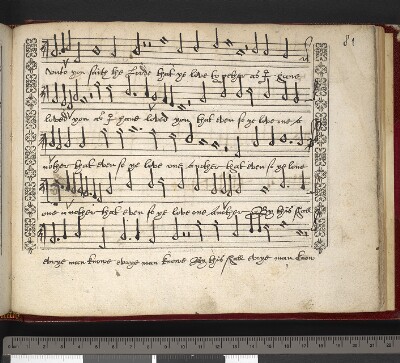 81
unto you saith he that ye love to gether as I have
loved you as I have loved you that even so ye love one a
nother that even so ye love one a nother that even so ye love
one a nother that even so ye love one another By this shall
evrye man knowe evrye man knowe By this shall evrye man know